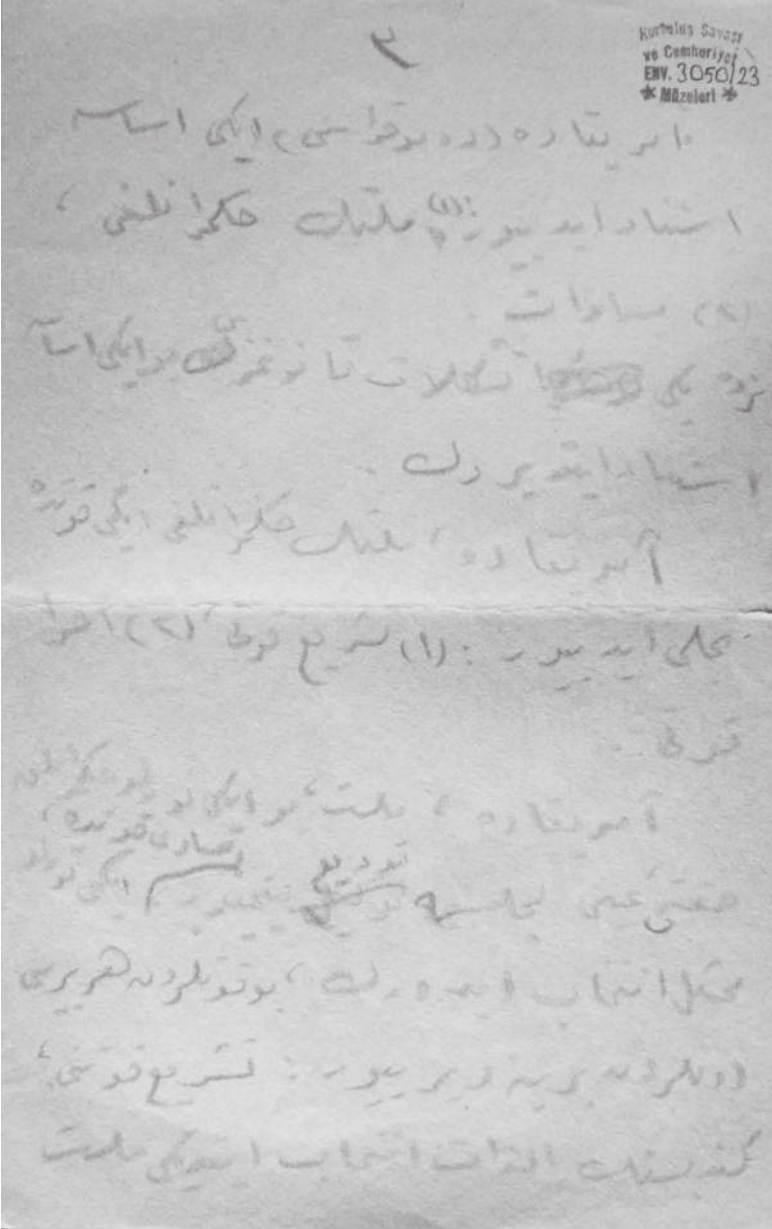 ٣
Kurtuluş Savaşı
ve Cumhuriyet
ENV. 3050/23
* Müzeleri *
آمریقاده (ده‌موقراسی) ایکی اساسه
استناد ایدییور: (١) ملتك حكمرانلغی ،
(٢) مساوات .
بزده یکی تشكلات قانونمزی بو ایکی اساسه
استناد ایتدیردك .
آمریقاده ، ملتك حكمرانلغی ایکی قوتده
تجلی ایدییور : (١) تشریع قوتی ، (٢) اجرا
قوتی .
آمریقاده ، ملت ، بو ایکی نوع حكمرانلق
حقنی عینی مجلسه تودیع ایتمییور
ایکی
ممثل انتخاب ایده‌رك ، بو قوتلردن هر برینی
اونلردن برینه ویرییور : تشریع قوتنی ،
كندیسنك بالذات انتخاب ایتدیکی ملت